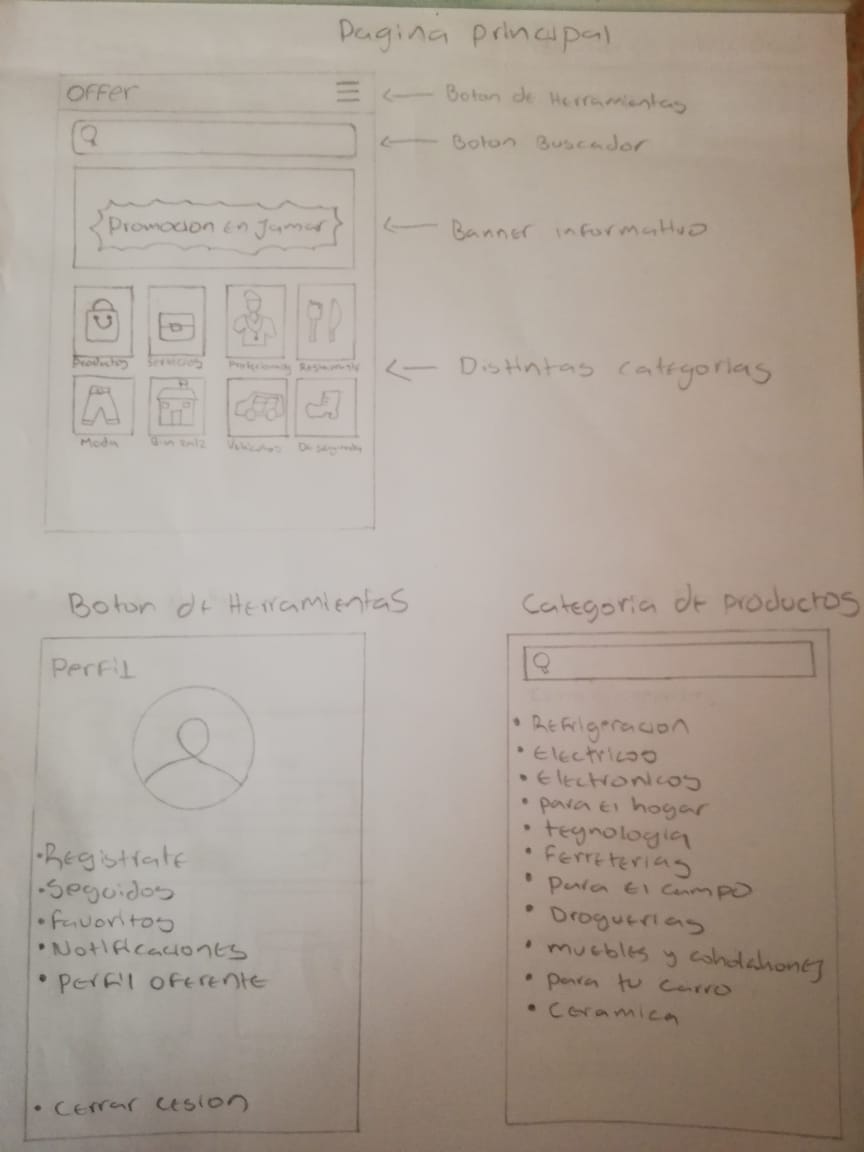 Pagina principal
OFFER
Boton de Herramientas
Boton Buscador
Promocion En Jamar
Banner informativo
Productos Servicios Profesionales Restaurante
Distintas categorias
Moda Vehiculos De segunda
Boton de Herramientas
Categoria de productos
Perfil
• Registrate
• Seguidos
• Favoritos
• Notificaciones
• Perfil oferente
• cerrar cesion
• Refrigeracion
• Electricos
• Electronicos
• para El hogar
• tegnologia
• Ferreterias
• para El campo
• Droguerias
• muebles y colchahones
• para tu carro
• Ceramica